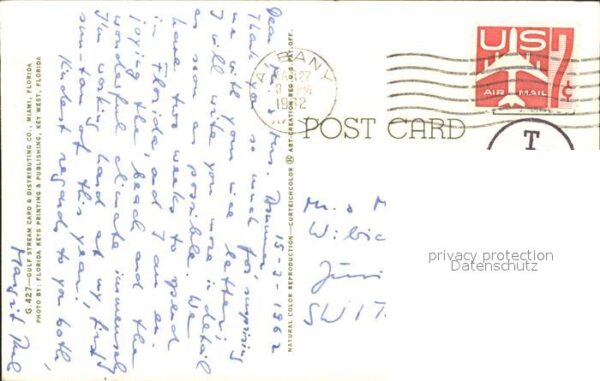 Dear Mr. & Mrs. Brunner, 15-2-1962
Thank you so much for surprising
me with your nice letter,
I will write you more in detail
as soon as possible. We
have two weeks to spend
in Florida, and I am en-
joying the beach and the
wonderful climate immensely.
I'm working hard at my first
sun-tan of this year.
Kindest regards to you both,
Margrit
G.427—GULF STREAM CARD & DISTRIBUTING CO., MIAMI, FLORIDA
PHOTO BY: FLORIDA KEYS PRINTING & PUBLISHING, KEY WEST, FLORIDA
NATURAL COLOR REPRODUCTION—CURTEICHCOLOR ® ART-CREATION REG. U.S. PAT. OFF.
1962
US
7¢
AIR MAIL
POST CARD
T
Mr. &
SWIT
privacy protection
Datenschutz